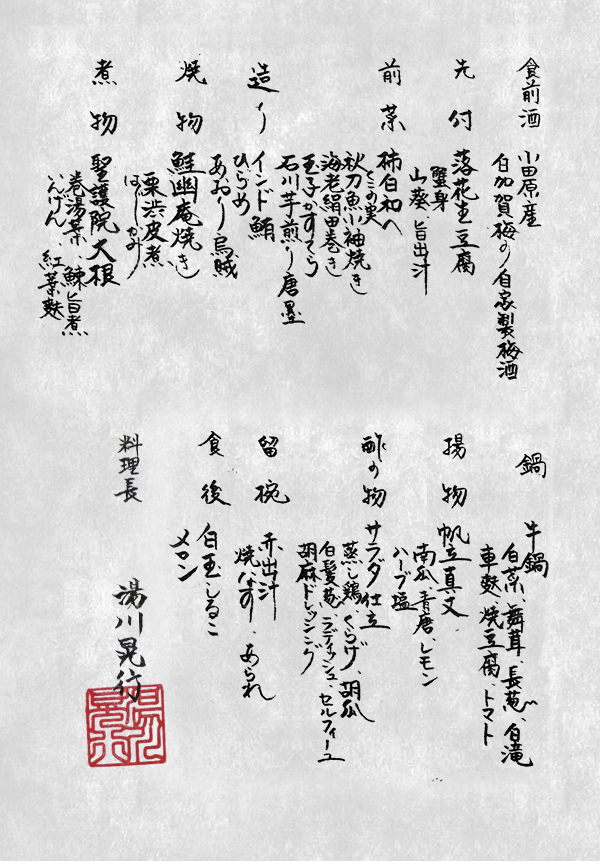 食前酒 小田原産
白加賀梅の自家製梅酒
先付 落花生豆腐
蟹身
山葵、旨出汁
前菜 柿白和へ
くこの実
秋刀魚小袖焼き
海老絹田巻き
玉子かすてら
石川芋煎り唐墨
造り インド鮪
ひらめ
あおり烏賊
焼物 鮭幽庵焼き
栗渋皮煮
はじかみ
煮物 聖護院大根
巻湯葉、鰊旨煮
いんげん、紅葉麩
鍋 牛鍋
白菜、舞茸、長葱、白滝
車麩、焼豆腐、トマト
揚物 帆立真丈
南瓜、青唐、レモン
ハーブ塩
酢の物 サラダ仕立
蒸し鶏、くらげ、胡瓜
白髪葱、ラディッシュ、セルフィーユ
胡麻ドレッシング
留椀 赤出汁
焼なす、あられ
食後 白玉しるこ
メロン
料理長 湯川晃行